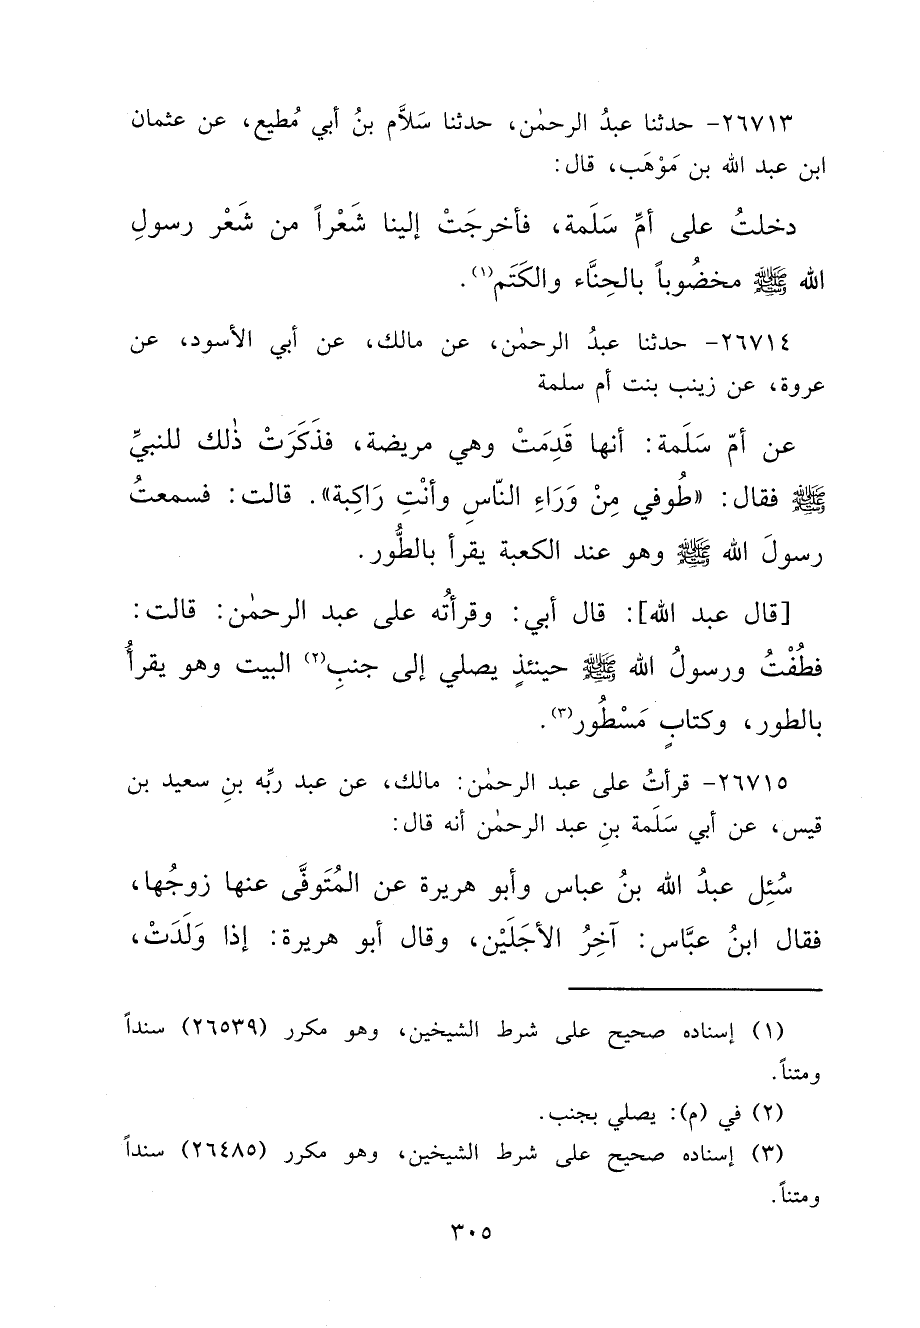 ٢٦٧١٣- حدثنا عبدُ الرحمٰن، حدثنا سَلاَّم بنُ أبي مُطيع، عن عثمان
ابن عبد الله بن مَوْهَب، قال:
دخلتُ على أمِّ سَلَمة، فأخرجَتْ إلينا شَعْراً من شَعْر رسولِ
الله ﷺ مخضُوباً بالحِنَّاء والكَتَم(١).
٢٦٧١٤- حدثنا عبدُ الرحمٰن، عن مالك، عن أبي الأسود، عن
عروة، عن زينب بنت أم سلمة
عن أمّ سَلَمة: أنها قَدِمَتْ وهي مريضة، فذَكَرَتْ ذٰلك للنبيِّ
ﷺ فقال: «طُوفي مِنْ وَرَاءِ النّاسِ وأنْتِ رَاكِبة». قالت: فسمعتُ
رسولَ الله ﷺ وهو عند الكعبة يقرأ بالطُّور.
[قال عبد الله]: قال أبي: وقرأتُه على عبد الرحمٰن: قالت:
فطُفْتُ ورسولُ الله ﷺ حينئذٍ يصلي إلى جنبِ(٢) البيت وهو يقرأُ
بالطور، وكتابٍ مَسْطُورٍ(٣).
٢٦٧١٥- قرأتُ على عبد الرحمٰن: مالك، عن عبد ربِّه بنِ سعيد بن
قيس، عن أبي سَلَمة بنِ عبد الرحمٰن أنه قال:
سُئِل عبدُ الله بنُ عباس وأبو هريرة عن المُتَوفَّى عنها زوجُها،
فقال ابنُ عبَّاس: آخِرُ الأجَلَيْن، وقال أبو هريرة: إذا وَلَدَتْ،
(١) إسناده صحيح على شرط الشيخين، وهو مكرر (٢٦٥٣٩) سنداً
ومتناً.
(٢) في (م): يصلي بجنب.
(٣) إسناده صحيح على شرط الشيخين، وهو مكرر (٢٦٤٨٥) سنداً
ومتناً.
٣٠٥